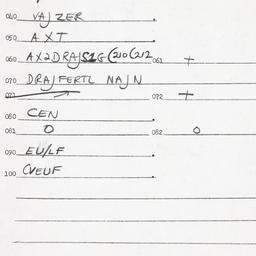 040 VAJ ZER.
050 A X T.
060 AX2DRAJS1G(2)0(2)2 061 +
070 DRAJFERTL NAJN
071 072 +
080 CEN.
081 0 082 0
090 EU/LF.
100 CVEUF.